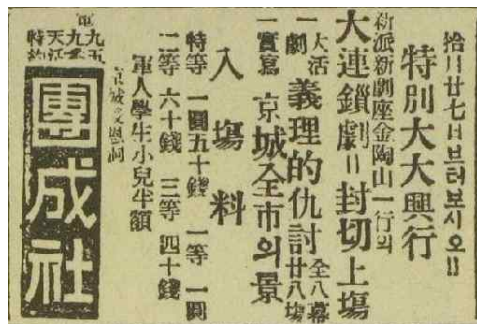 拾月廿七日브터보시오‖
特別大大興行
新派新劇座金陶山一行의
大連鎖劇‖封切上場
一大活劇 義理的仇討 全八幕廿八場
一實寫 京城全市의景
入場料
特等 一圓五十錢 一等 一圓
二等 六十錢 三等 四十錢
軍人學生小兒半額
團成社